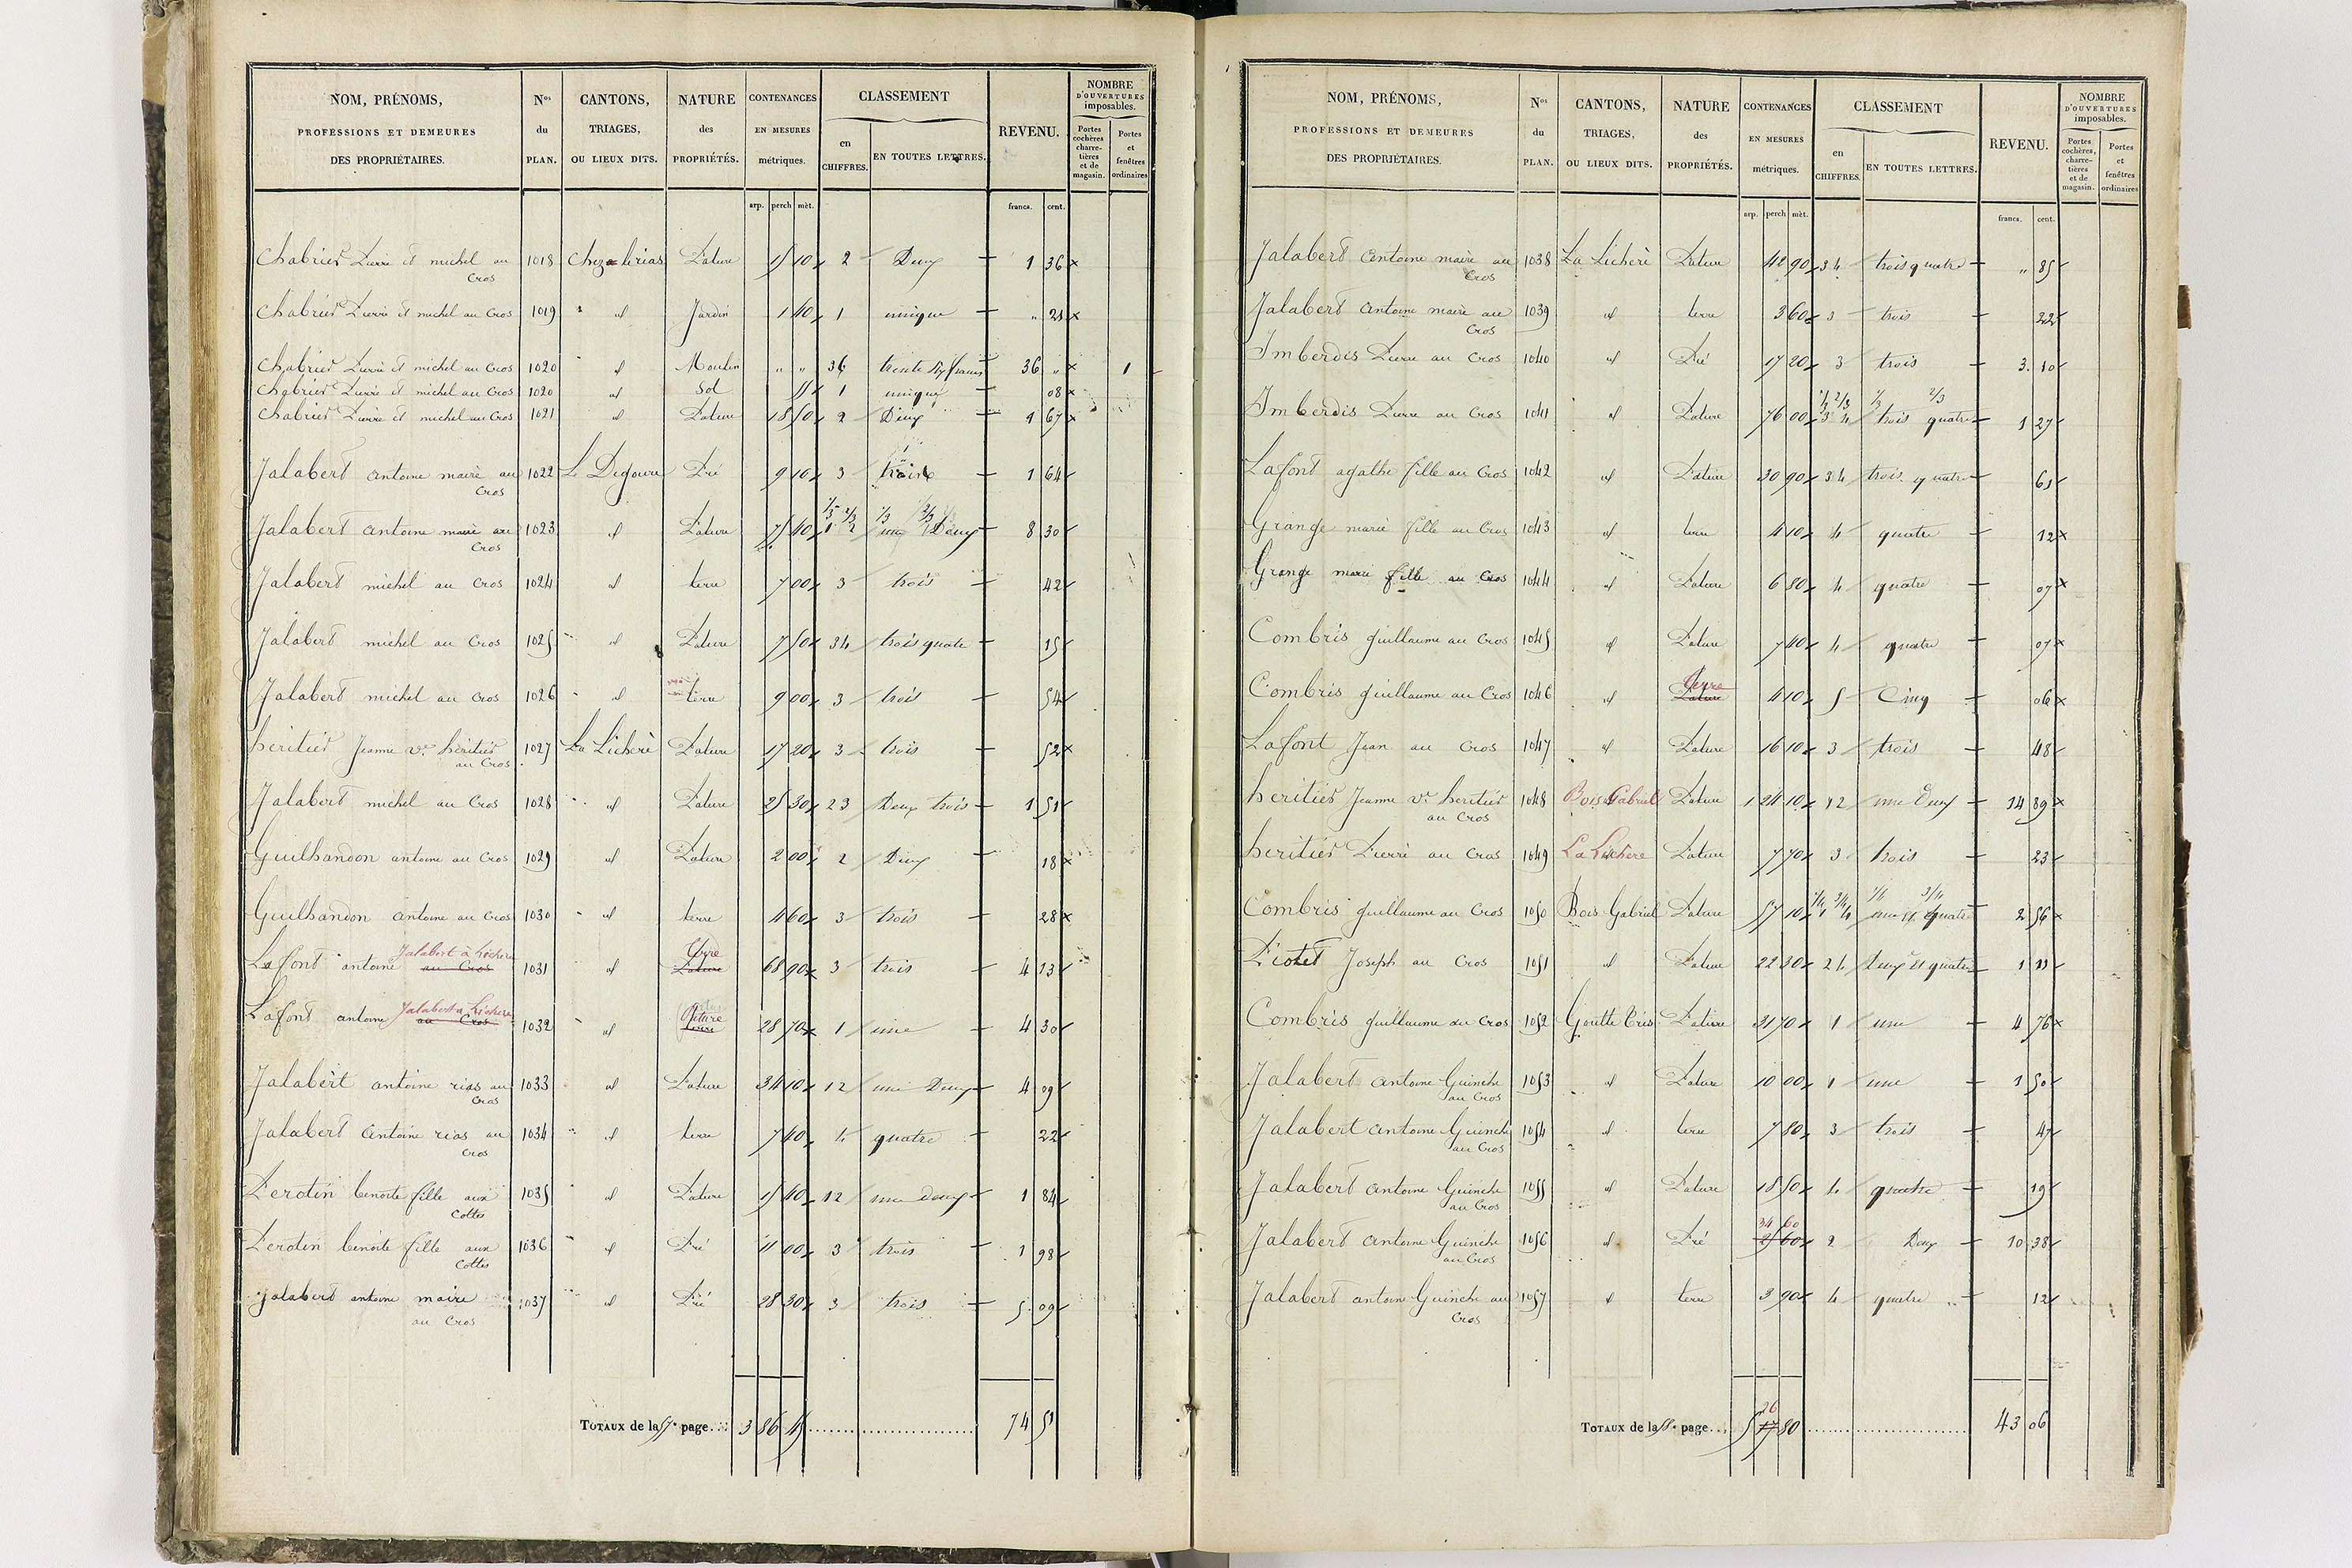 NOM, PRÉNOMS, PROFESSIONS ET DEMEURES DES PROPRIÉTAIRES. Nos du PLAN. CANTONS, TRIAGES, OU LIEUX DITS. NATURE des PROPRIÉTÉS. CONTENANCES EN MESURES métriques. CLASSEMENT en CHIFFRES. EN TOUTES LETTRES. REVENU. NOMBRE D'OUVERTURES imposables. Portes cochères, charretières et de magasin. Portes et fenêtres ordinaires
arp. perch mèt. francs. cent.
Chabrier Pierre et michel au Cros 1018 Chez Pature 15 10 2 Deux 1 36
Chabrier Pierre et michel au Cros 1019 id Jardin 1 40 1 unique " 21
Chabrier Pierre et michel au Cros 1020 id Moulin " " 36 trente six francs 36 " 1
Chabrier Pierre et michel au Cros 1020 id Sol 1 unique 08
Chabrier Pierre et michel au Cros 1021 id Pature 18 50 2 Deux 1 67
Jalabert antoine maire au Cros 1022 Le Pré 9 10 3 trois 1 64
Jalabert antoine maire au Cros 1023 id Pature 75 40 1/3 2/3 1 2 1/3 2/3 une Deux 8 30
Jalabert michel au Cros 1024 id terre 7 00 3 trois 42
Jalabert michel au Cros 1025 id Pature 7 50 34 trois quatre 15
Jalabert michel au Cros 1026 id terre 9 00 3 trois 54
heritier Jeanne ve heritier au Cros 1027 La Licherè Pature 17 20 3 trois 52
Jalabert michel au Cros 1028 id Pature 25 30 23 Deux trois 1 51
Guilhandon antoine au Cros 1029 id Pature 2 00 2 Deux 18
Guilhandon antoine au Cros 1030 id terre 4 60 3 trois 28
Lafont antoine au Cros Jalabert à Lichere 1031 id Pature Terre 68 90 3 trois 4 13
Lafont antoine au Cros Jalabert à Lichere 1032 id terre Pature 28 70 1 une 4 30
Jalabert antoine rias au Cros 1033 id Pature 34 10 12 une Deux 4 09
Jalabert antoine rias au Cros 1034 id terre 7 40 4 quatre 22
Perotin benoite fille aux Cottes 1035 id Pature 15 40 12 une deux 1 84
Perotin benoite fille aux Cottes 1036 id Pré 11 00 3 trois 1 98
Jalabert antoine maire au Cros 1037 id Pré 28 30 3 trois 5 09
TOTAUX de la 57e page... 3 86 15 74 51
NOM, PRÉNOMS, PROFESSIONS ET DEMEURES DES PROPRIÉTAIRES. Nos du PLAN. CANTONS, TRIAGES, OU LIEUX DITS. NATURE des PROPRIÉTÉS. CONTENANCES EN MESURES métriques. CLASSEMENT en CHIFFRES. EN TOUTES LETTRES. REVENU. NOMBRE D'OUVERTURES imposables. Portes cochères, charretières et de magasin. Portes et fenêtres ordinaires
arp. perch mèt. francs. cent.
Jalabert antoine maire au Cros 1038 La Licherè Pature 42 90 34 trois quatre " 85
Jalabert antoine maire au Cros 1039 id terre 3 60 3 trois 22
Imberdis Pierre au Cros 1040 id Pré 17 20 3 trois 3 10
Imberdis Pierre au Cros 1041 id Pature 76 00 1/3 2/3 3 4 1/3 2/3 trois quatre 1 27
Lafont agathe fille au Cros 1042 id Pature 30 90 34 trois quatre 61
Grange marie fille au Cros 1043 id terre 4 10 4 quatre 12
Grange marie fille au Cros 1044 id Pature 6 80 4 quatre 07
Combris guillaume au Cros 1045 id Pature 7 40 4 quatre 07
Combris guillaume au Cros 1046 id Pature Terre 4 10 5 Cinq 06
Lafont Jean au Cros 1047 id Pature 16 10 3 trois 48
heritier Jeanne ve heritier au Cros 1048 Bois Gabriel Pature 1 24 10 12 une Deux 14 89
heritier Pierre au Cros 1049 La Lichere Pature 7 70 3 trois 23
Combris guillaume au Cros 1050 Bois Gabriel Pature 57 10 1/4 3/4 1 4 1/4 3/4 une et quatre 2 56
Piotet Joseph au Cros 1051 id Pature 22 30 24 deux et quatre 1 11
Combris guillaume au Cros 1052 Goutte Pature 31 70 1 une 4 76
Jalabert antoine Guinche au Cros 1053 id Pature 10 00 1 une 1 50
Jalabert antoine Guinche au Cros 1054 id terre 7 80 3 trois 47
Jalabert antoine Guinche au Cros 1055 id Pature 18 50 4 quatre 19
Jalabert antoine Guinche au Cros 1056 id Pré 34 60 25 60 2 Deux 10 38
Jalabert antoine Guinche au Cros 1057 id terre 3 90 4 quatre 12
TOTAUX de la 58e page... 5 26 17 80 43 06